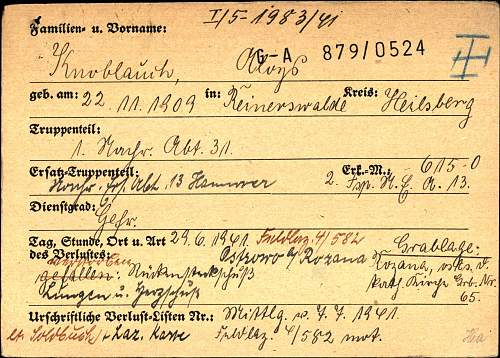 I/5-1983/41
Familien- u. Vorname:
G-A 879/0524
Knoblauch, Aloys
geb. am: 22.11.1909 in: Reinerswalde Kreis: Heilsberg
Truppenteil:
1. Nachr. Abt. 31.
Ersatz-Truppenteil: Erk.-M.: 615-0
Nachr. Ers. Abt. 13 Hannover 2. Fsp. N. E. A. 13.
Dienstgrad:
Gefr.
Tag, Stunde, Ort u. Art 29.6.1941 Feldlaz. 4/582
des Verlustes: verstorben Ostrowo b/Rozana Grablage:
gefallen: Rückensteckschuß Rozana, ostw. d.
Lungen u. Herzschuß kath. Kirche Grb. Nr.
65.
Urschriftliche Verlust-Listen Nr.: Mittlg. v. 7.7.1941
lt. Soldbuch + Laz. Karte Feldlaz. 4/582 mot.